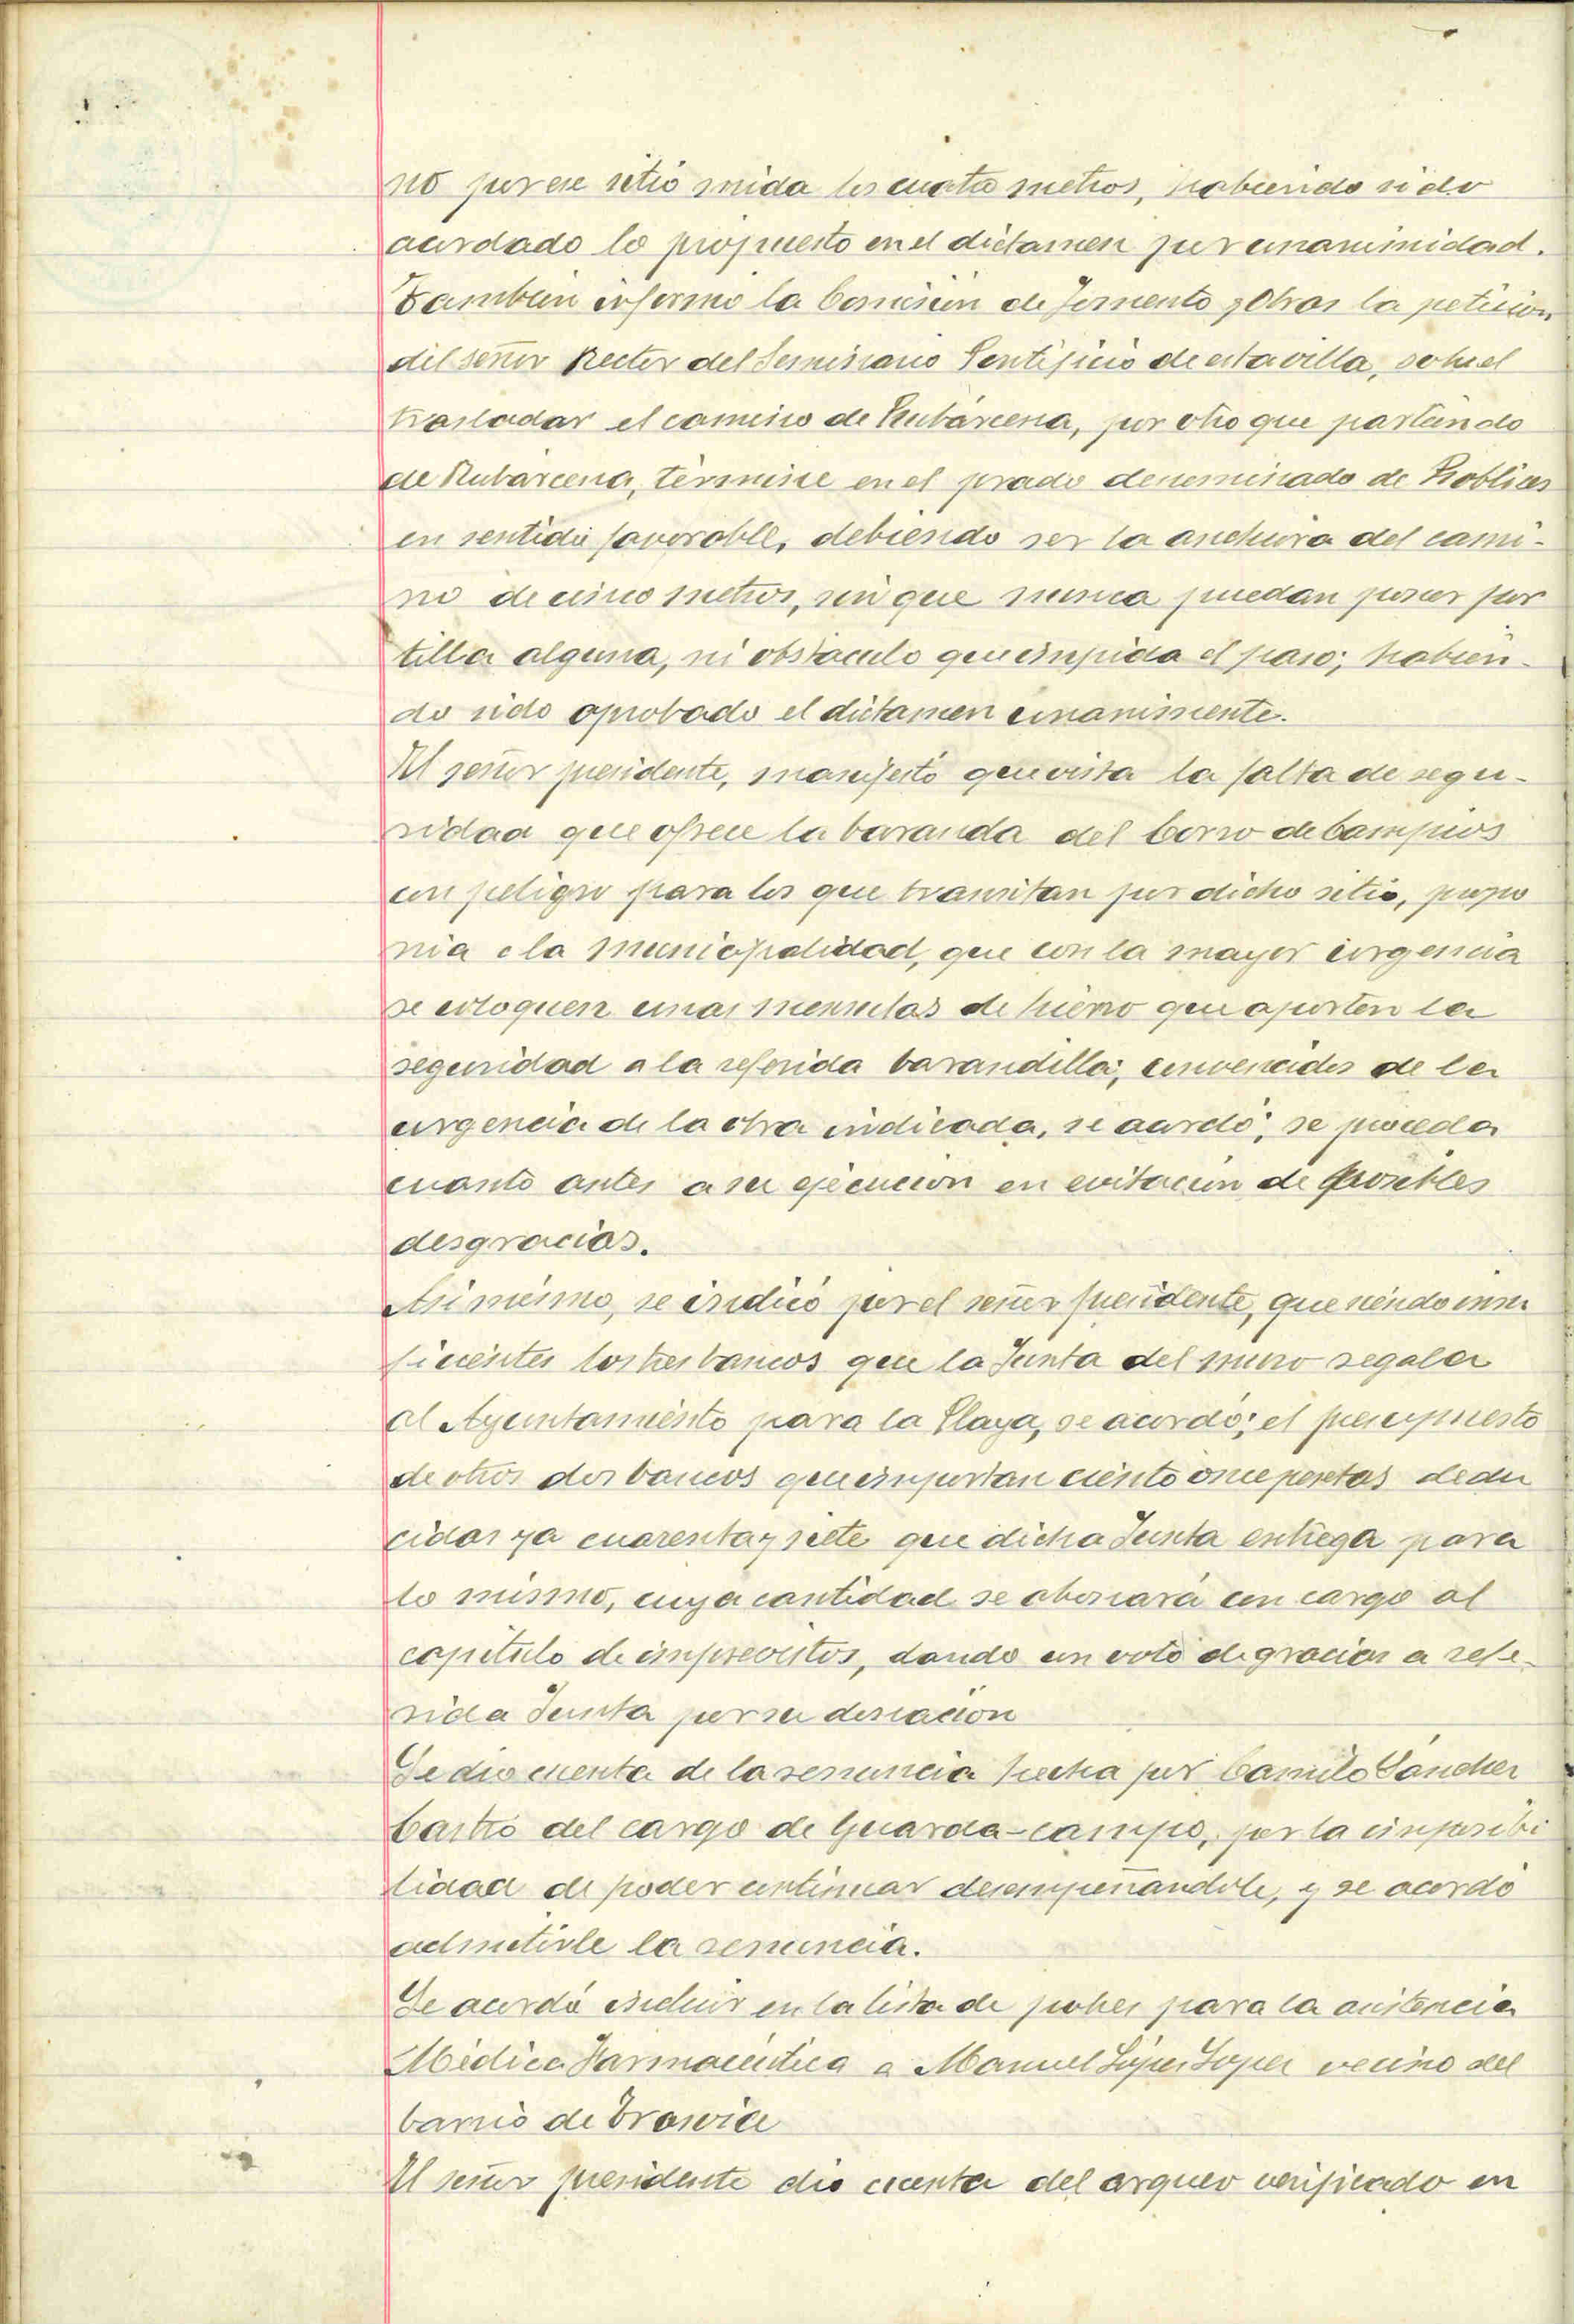 no por ese sitio mida los cuatro metros, habiendo sido
acordado lo propuesto en el dictamen por unanimidad.
También informó la Comisión de Fomento y Obras la petición
del señor Rector del Seminario Pontificio de esta villa, sobre el
trasladar el camino de Rubárcena, por otro que partiendo
de Rubárcena, termine en el prado denominado de Roblices
en sentido favorable, debiendo ser la anchura del cami-
no de cinco metros, sin que nunca puedan poner por
tilla alguna, ni obstáculo que impida el paso; habien-
do sido aprobado el dictamen unanimente.
El señor presidente, manifestó que vista la falta de segu-
ridad que ofrece la baranda del Corro de Campios
con peligro para los que transitan por dicho sitio, propo
nia a la Municipalidad, que con la mayor urgencia
se coloquen unas mensulas de hierro que aporten la
seguridad a la referida barandilla; convencidos de la
urgencia de la obra indicada, se acordó; se proceda
cuanto antes a su ejecución en evitación de posibles
desgracias.
Asi mismo, se indicó por el señor presidente, que siendo insu
ficientes los tres bancos que la Junta del muro regala
al Ayuntamiento para la Playa, se acordó; el presupuesto
de otros dos bancos que importan ciento once pesetas dedu
cidas ya cuarenta y siete que dicha Junta entrega para
lo mismo, cuya cantidad se abonará con cargo al
capítulo de imprevistos, dando un voto de gracias a refe-
rida Junta por su donación
Se dio cuenta de la renuncia hecha por Camilo Sánchez
Castro del cargo de Guarda-campo, por la imposibi
lidad de poder continuar desempeñandole, y se acordó
admitirle la renuncia.
Se acordó incluir en la lista de pobres para la asistencia
Médica Farmacéutica a Manuel López López vecino del
barrio de Trasvia
El señor presidente dio cuenta del arqueo verificado en